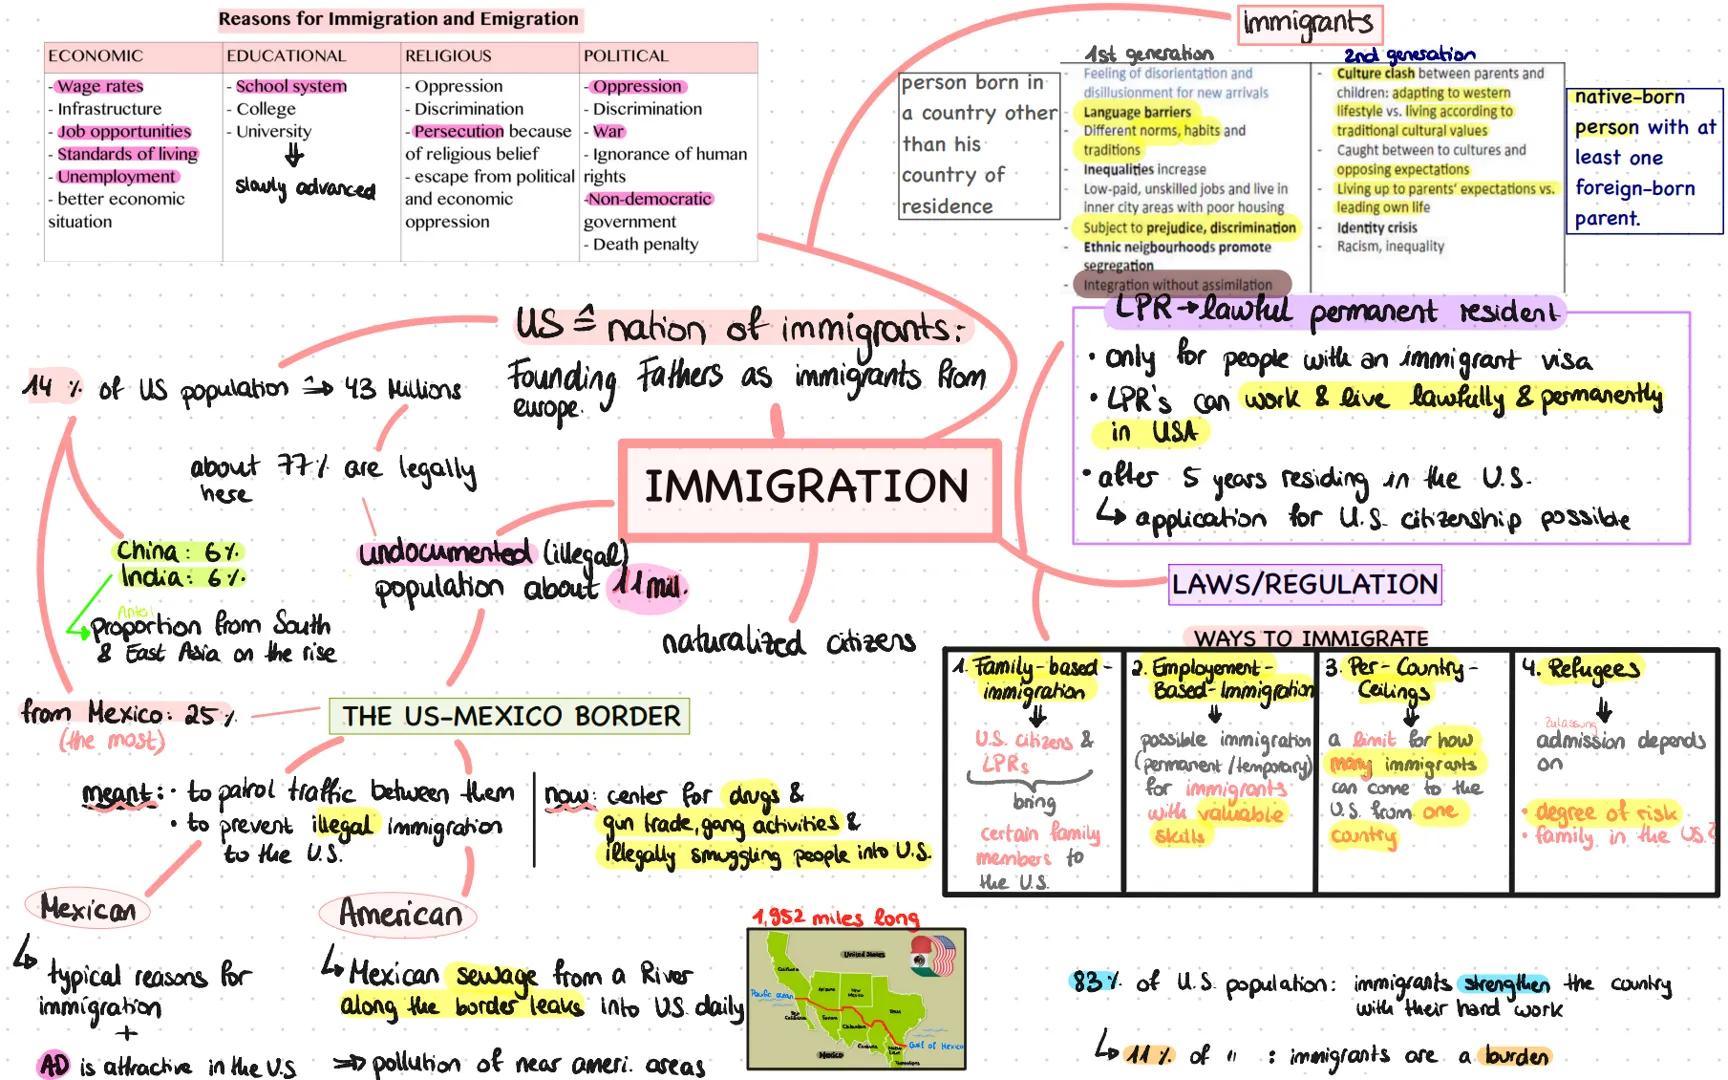 Reasons for Immigration and Emigration
ECONOMIC
- Wage rates
- Infrastructure
- Job opportunities
- Standards of living
- Unemployment
- better economic
situation
EDUCATIONAL
- School system
- College
- University
slowly advanced
RELIGIOUS
- Oppression
- Discrimination
- Persecution because
of religious belief
- escape from political
and economic
oppression
POLITICAL
- Oppression
- Discrimination
- War
- Ignorance of human
rights
-Non-democratic
government
- Death penalty
immigrants
person born in
a country other
than his
country of
residence
1st generation
Feeling of disorientation and
disillusionment for new arrivals
- Language barriers
- Different norms, habits and
traditions
- Inequalities increase
- Low-paid, unskilled jobs and live in
inner city areas with poor housing
- Subject to prejudice, discrimination
- Ethnic neigbourhoods promote
segregation
Integration without assimilation
2nd generation
- Culture clash between parents and
children: adapting to western
lifestyle vs. living according to
traditional cultural values
- Caught between to cultures and
opposing expectations
- Living up to parents' expectations vs.
leading own life
- Identity crisis
- Racism, inequality
native-born
person with at
least one
foreign-born
parent.
US ≙ nation of immigrants:
Founding Fathers as immigrants from
europe.
14 % of US population ⇒ 43 Millions
about 77% are legally
here
China: 6%
India: 6%
proportion from South
& East Asia on the rise
from Mexico: 25%
(the most)
IMMIGRATION
undocumented (illegal)
population about 11 mill.
naturalized citizens
LPR → lawful permanent resident
• only for people with an immigrant visa
• LPR's can work & live lawfully & permanently
in USA
• after 5 years residing in the U.S.
↳ application for U.S. citizenship possible
LAWS/REGULATION
WAYS TO IMMIGRATE
1. Family-based-
immigration
U.S. citizens &
LPRs
bring
certain family
members to
the U.S.
2. Employement-
Based-Immigration
possible immigration
(permanent/temporary)
for immigrants
with valuable
skills
3. Per-Country-
Ceilings
a limit for how
many immigrants
can come to the
U.S. from one
country
4. Refugees
Zulassung
admission depends
on
• degree of risk
• family in the US?
THE US-MEXICO BORDER
meant: • to patrol traffic between them
• to prevent illegal immigration
to the U.S.
now: center for drugs &
gun trade, gang activities &
illegally smuggling people into U.S.
Mexican
↳ typical reasons for
immigration
+
AD is attractive in the U.S
American
↳ Mexican sewage from a River
along the border leaks into U.S. daily
⇒ pollution of near ameri. areas
1,952 miles long
United States
California
Arizona
New
Mexico
Texas
Pacific ocean
Sonora
Chihuahua
Gulf of Mexico
Mexico
Tamaulipas
83% of U.S. population: immigrants strengthen the country
with their hard work
↳ 11% of " : immigrants are a burden